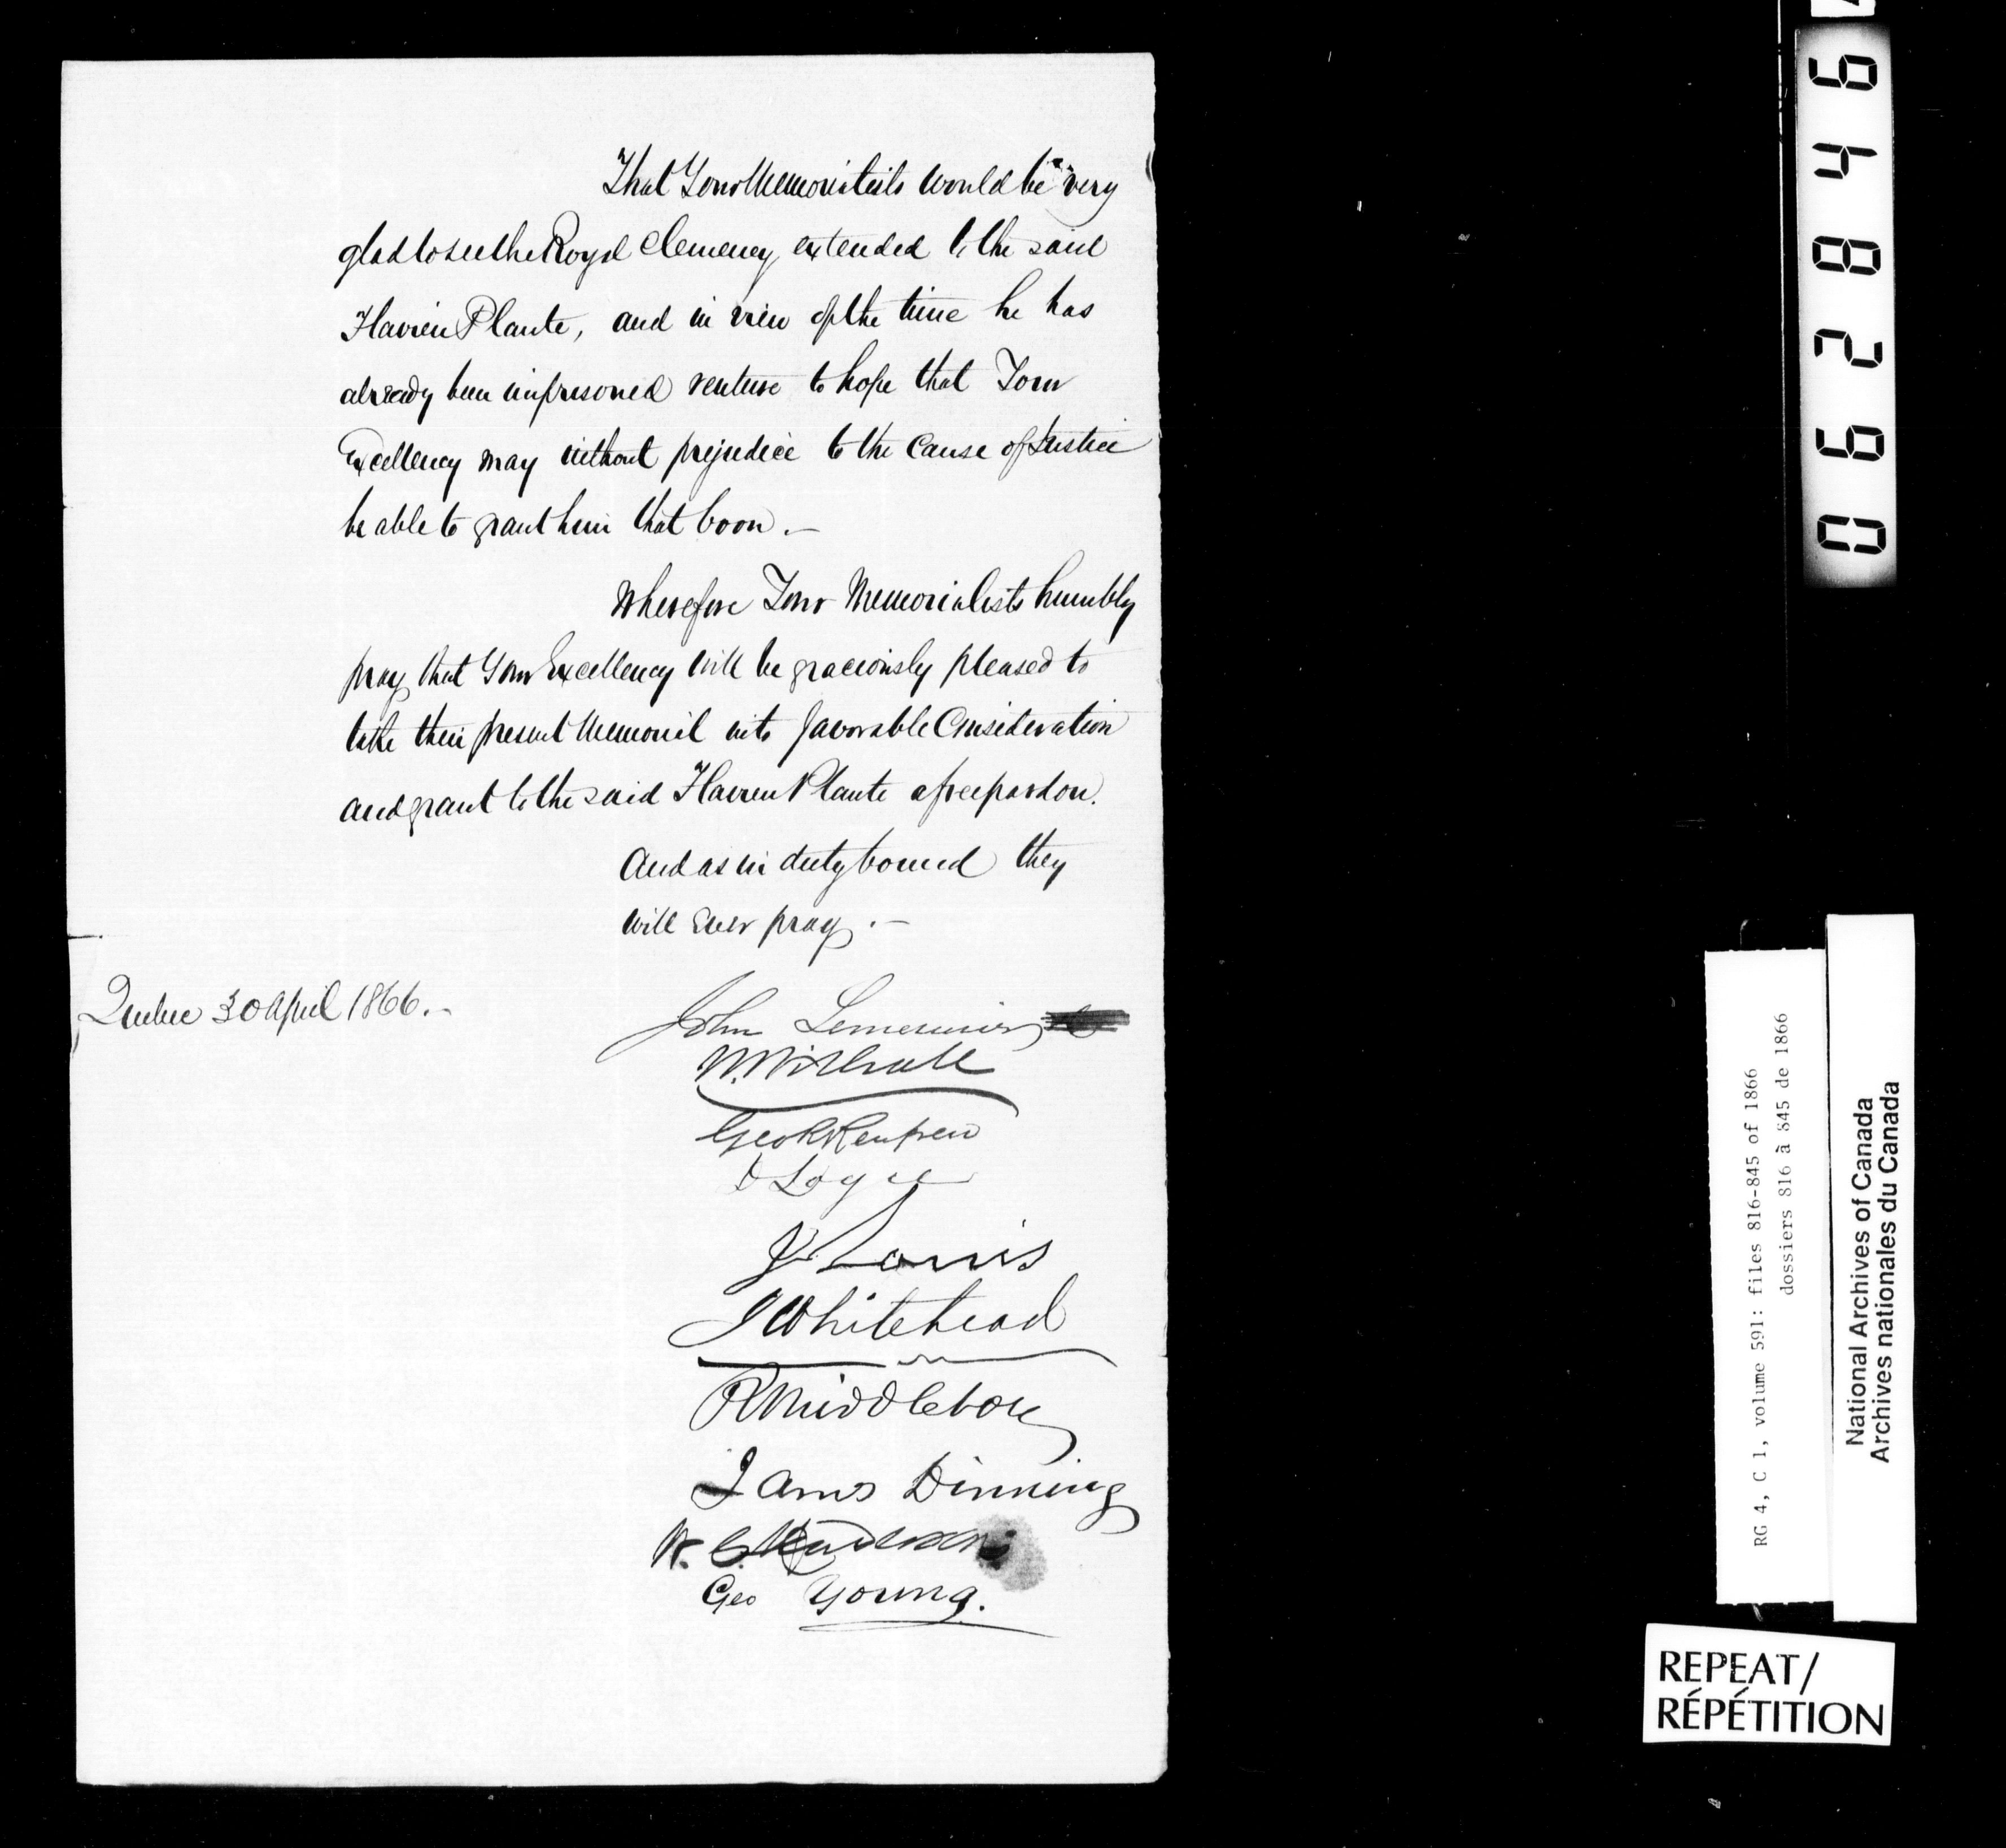 That Your Memorialists would be very
glad to see the Royal Clemency, extended to the said
Flavien Plante, and in view of the time he has
already been imprisoned venture to hope that Your
Excellency may without prejudice to the Cause of Justice
be able to grant him that boon.—
Wherefore Your Memorialists humbly
pray that Your Excellency will be graciously pleased to
take their present Memorial into favorable Consideration
and grant to the said Flavien Plante a free pardon.
And as in duty bound they
will Ever pray.—
Quebec 30 April 1866.—
John Lemesurier
W. Withall
Geo R Renfrew
J Louis
J Whitehead
R Middleton
James Dinning
W. C. Henderson
Geo Young.
062846
RG 4, C 1, volume 591: files 816-845 of 1866
dossiers 816 à 845 de 1866
National Archives of Canada
Archives nationales du Canada
REPEAT/
RÉPÉTITION